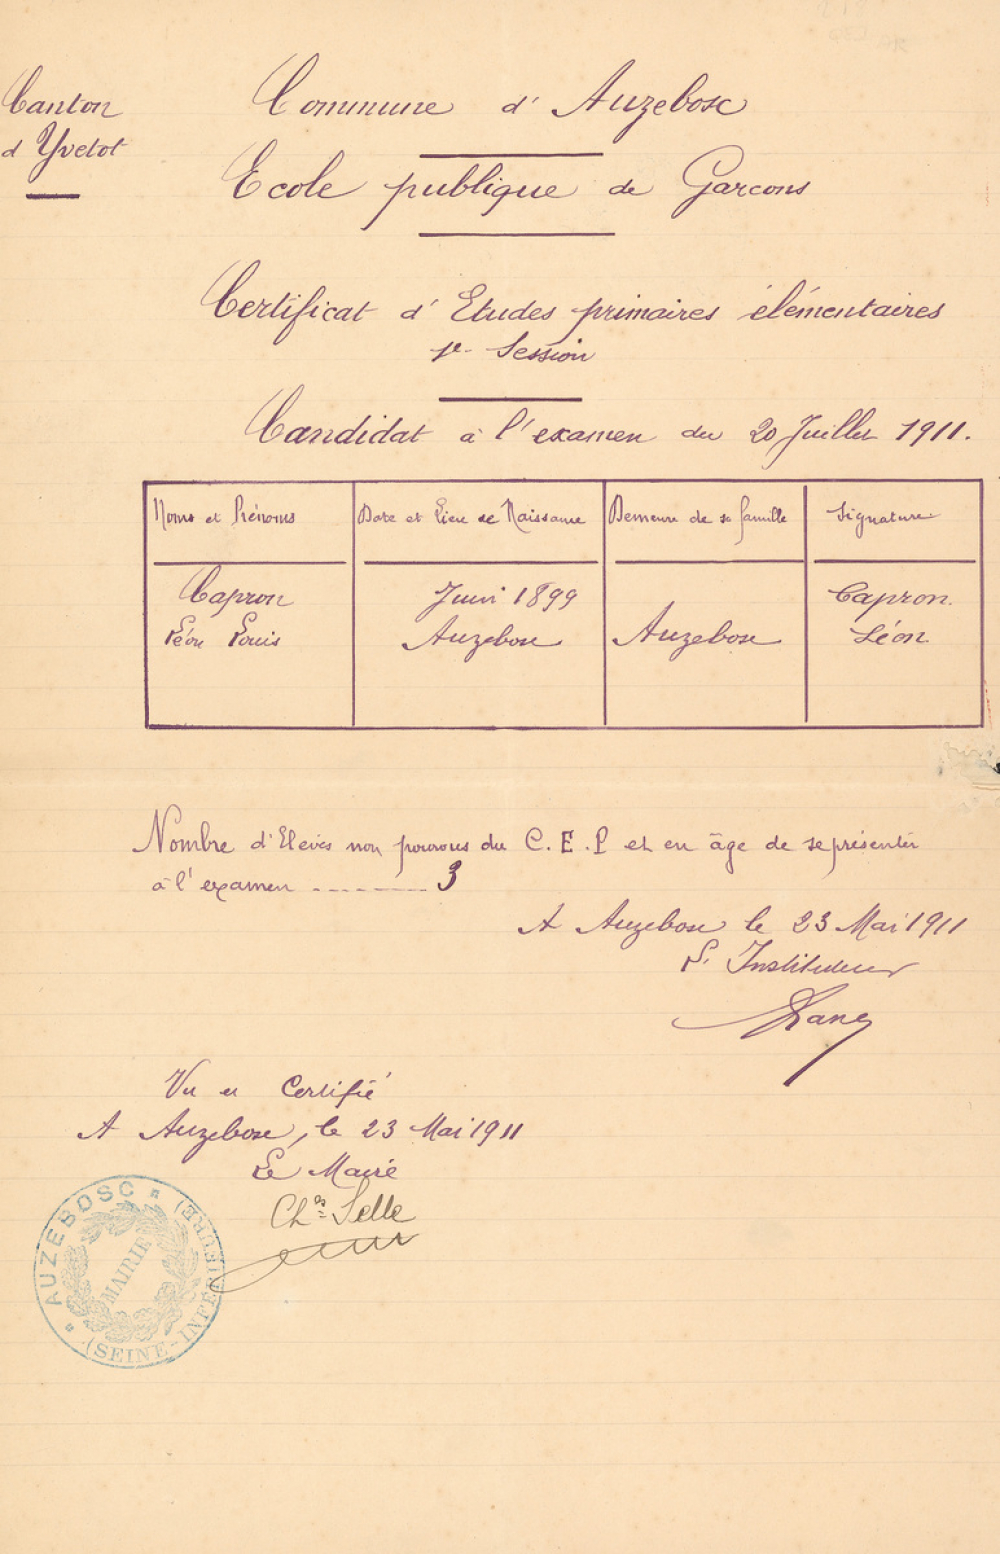 Canton
d'Yvetot
Commune d'Auzebosc
Ecole publique de Garcons
Certificat d'Etudes primaires élémentaires
1re Session
Candidat à l'examen du 20 Juillet 1911.
Noms et Prénoms
Date et Lieu de Naissance
Demeure de sa famille
Signature
Capron
Léon Louis
Juin 1899
Auzebosc
Auzebosc
Capron
Léon
Nombre d'Elèves non pourvus du C.E.P et en âge de se présenter
à l'examen ------- 3
A Auzebosc le 23 Mai 1911
L'Instituteur
Vu et Certifié
A Auzebosc, le 23 Mai 1911
Le Maire
Ch.es Selle
AUZEBOSC
MAIRIE
(SEINE-INFÉRIEURE)